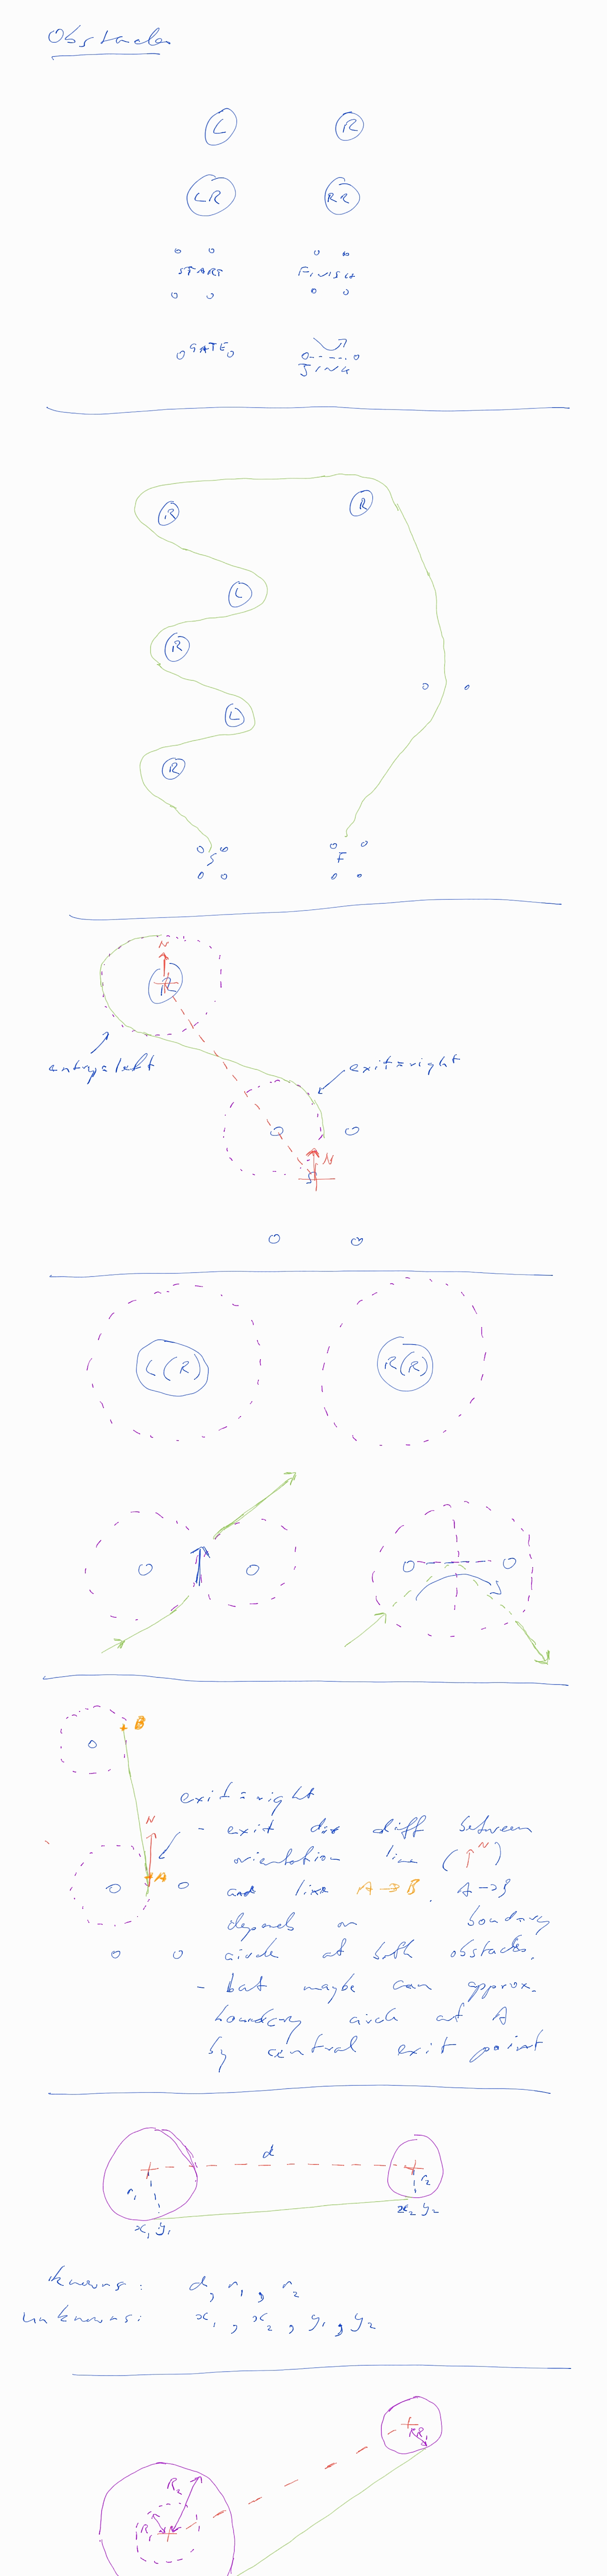 Obstacles
L R
LR RR
START FINISH
GATE JINK
R R
L
R
L
R
S F
N
R
entry=left
exit=right
N
S
L(R) R(R)
B
exit=right
N
- exit dir diff between
orientation line (↑N)
A
and line A→B. A→B
depends on boundary
circle at both obstacles.
- but maybe can approx.
boundary circle at A
by central exit point
d
r₁ r₂
x₁ y₁ x₂ y₂
knowns: d, r₁, r₂
unknowns: x₁, x₂, y₁, y₂
R₂
R₁